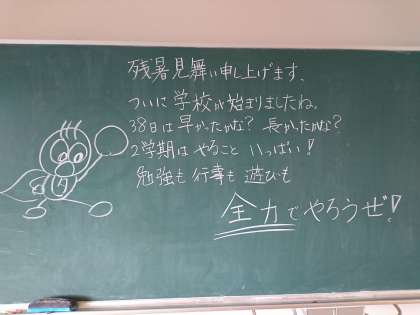 残暑見舞い申し上げます、
ついに学校が始まりましたね。
38日は早かったかな？長かったかな？
2学期はやることいっぱい！
勉強も行事も遊びも
全力でやろうぜ！